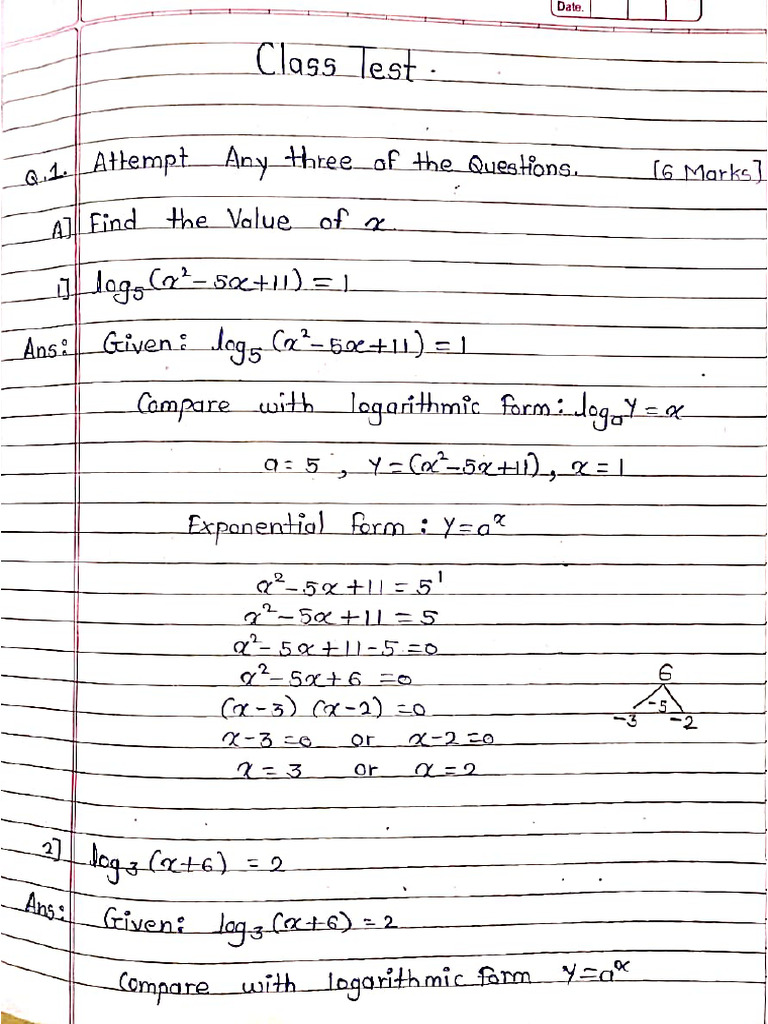 Date.
Class Test.
Q.1. Attempt Any three of the Questions. [6 Marks]
A] Find the Value of x
1] log₅(x²-5x+11) = 1
Ans: Given: log₅(x²-5x+11) = 1
Compare with logarithmic form: logₐy = x
a = 5, y = (x²-5x+11), x = 1
Exponential form: y = aˣ
x²-5x+11 = 5¹
x²-5x+11 = 5
x²-5x+11-5 = 0
x²-5x+6 = 0
6
(x-3) (x-2) = 0
-5
-3 -2
x-3 = 0 or x-2 = 0
x = 3 or x = 2
2] log₃(x+6) = 2
Ans: Given: log₃(x+6) = 2
Compare with logarithmic form y = aˣ